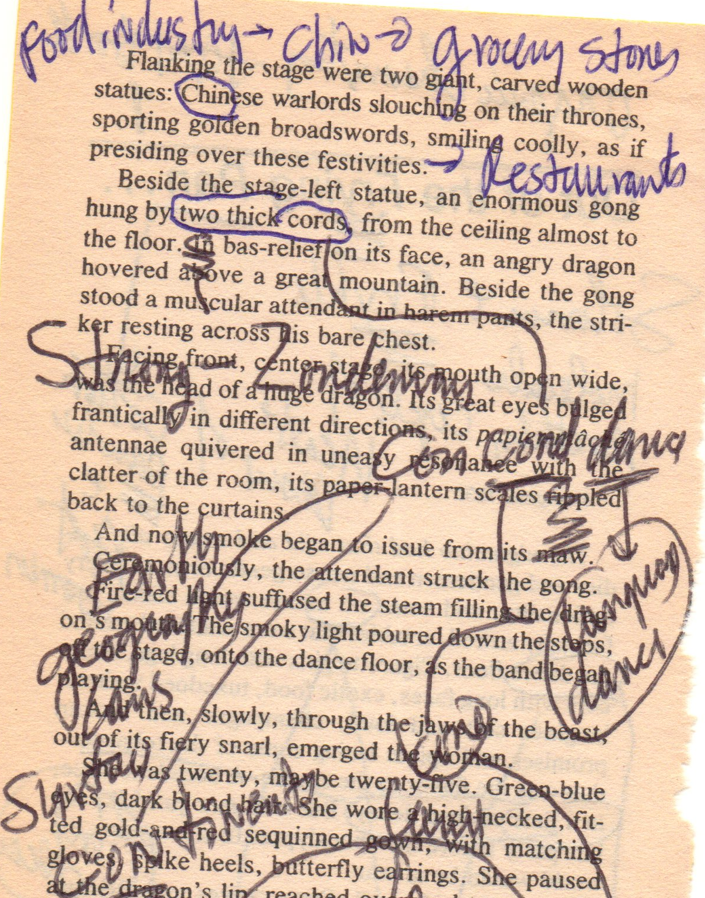 Food industry → Chin → grocery stores
Flanking the stage were two giant, carved wooden
statues: Chinese warlords slouching on their thrones,
sporting golden broadswords, smiling coolly, as if
presiding over these festivities. → Restaurants
Beside the stage-left statue, an enormous gong
hung by two thick cords, from the ceiling almost to
the floor. In bas-relief on its face, an angry dragon
hovered above a great mountain. Beside the gong
stood a muscular attendant in harem pants, the stri-
ker resting across his bare chest.
Strong-
Facing front, center stage, its mouth open wide,
was the head of a huge dragon. Its great eyes bulged
frantically in different directions, its papier-mâché
antennae quivered in uneasy resonance with the
clatter of the room, its paper-lantern scales rippled
back to the curtains.
And now smoke began to issue from its maw.
Earth
Ceremoniously, the attendant struck the gong.
Fire-red light suffused the steam filling the drag-
geography
on's mouth. The smoky light poured down the steps,
off the stage, onto the dance floor, as the band began
dance
playing.
Laws
And then, slowly, through the jaws of the beast,
out of its fiery snarl, emerged the woman.
She was twenty, maybe twenty-five. Green-blue
eyes, dark blond hair. She wore a high-necked, fit-
ted gold-and-red sequinned gown, with matching
gloves, spike heels, butterfly earrings. She paused
Continents
at the dragon's lip, reached